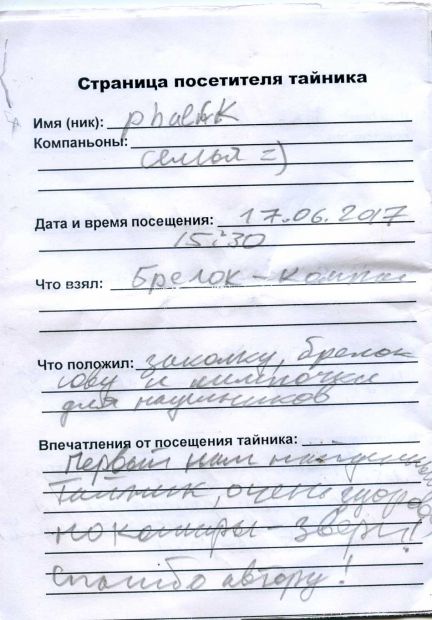 Страница посетителя тайника
Имя (ник):
Компаньоны:
семья =)
Дата и время посещения: 17.06.2017
15:30
Что взял: Брелок -
Что положил: заколку, брелок
сову и
для наушников
Впечатления от посещения тайника:
Первый нами найденный
тайник, очень здорово
но комары - звери!
Спасибо автору!